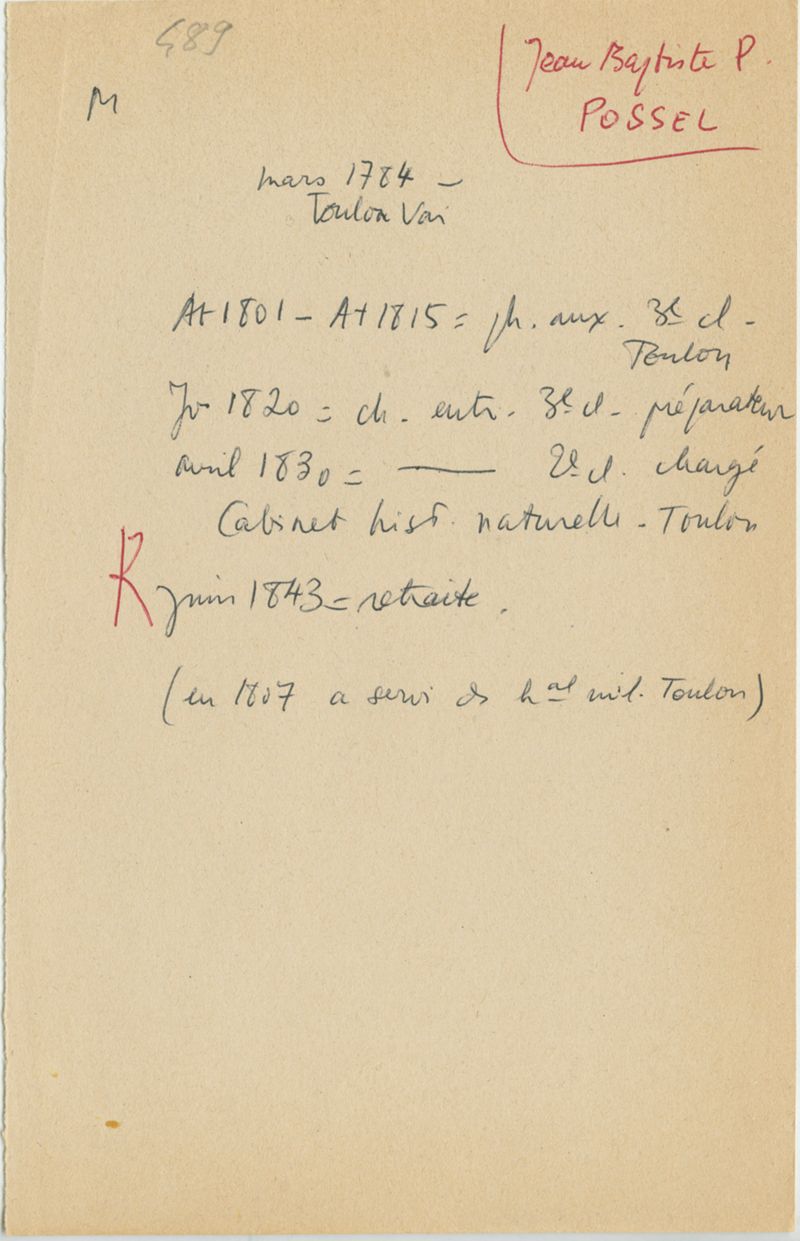 489
M
Jean Baptiste P.
POSSEL
mars 1784 -
Toulon Var
At 1801 - At 1815 = ph. aux. 3e cl -
Toulon
Jr 1820 = ch. entr. 3e cl - préparateur
avril 1830 = —— 2e cl. chargé
Cabinet hist. naturelle - Toulon
R juin 1843 = retraite.
(en 1807 a servi ds hal mil. Toulon)